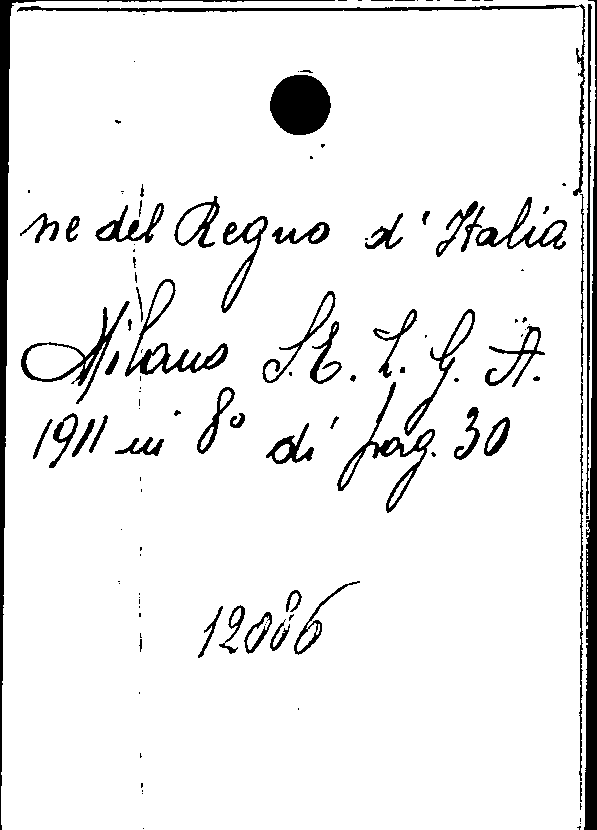 ne del Regno d'Italia
Milano S.E.L.G.A.
1911 in 8° di pag. 30
12086